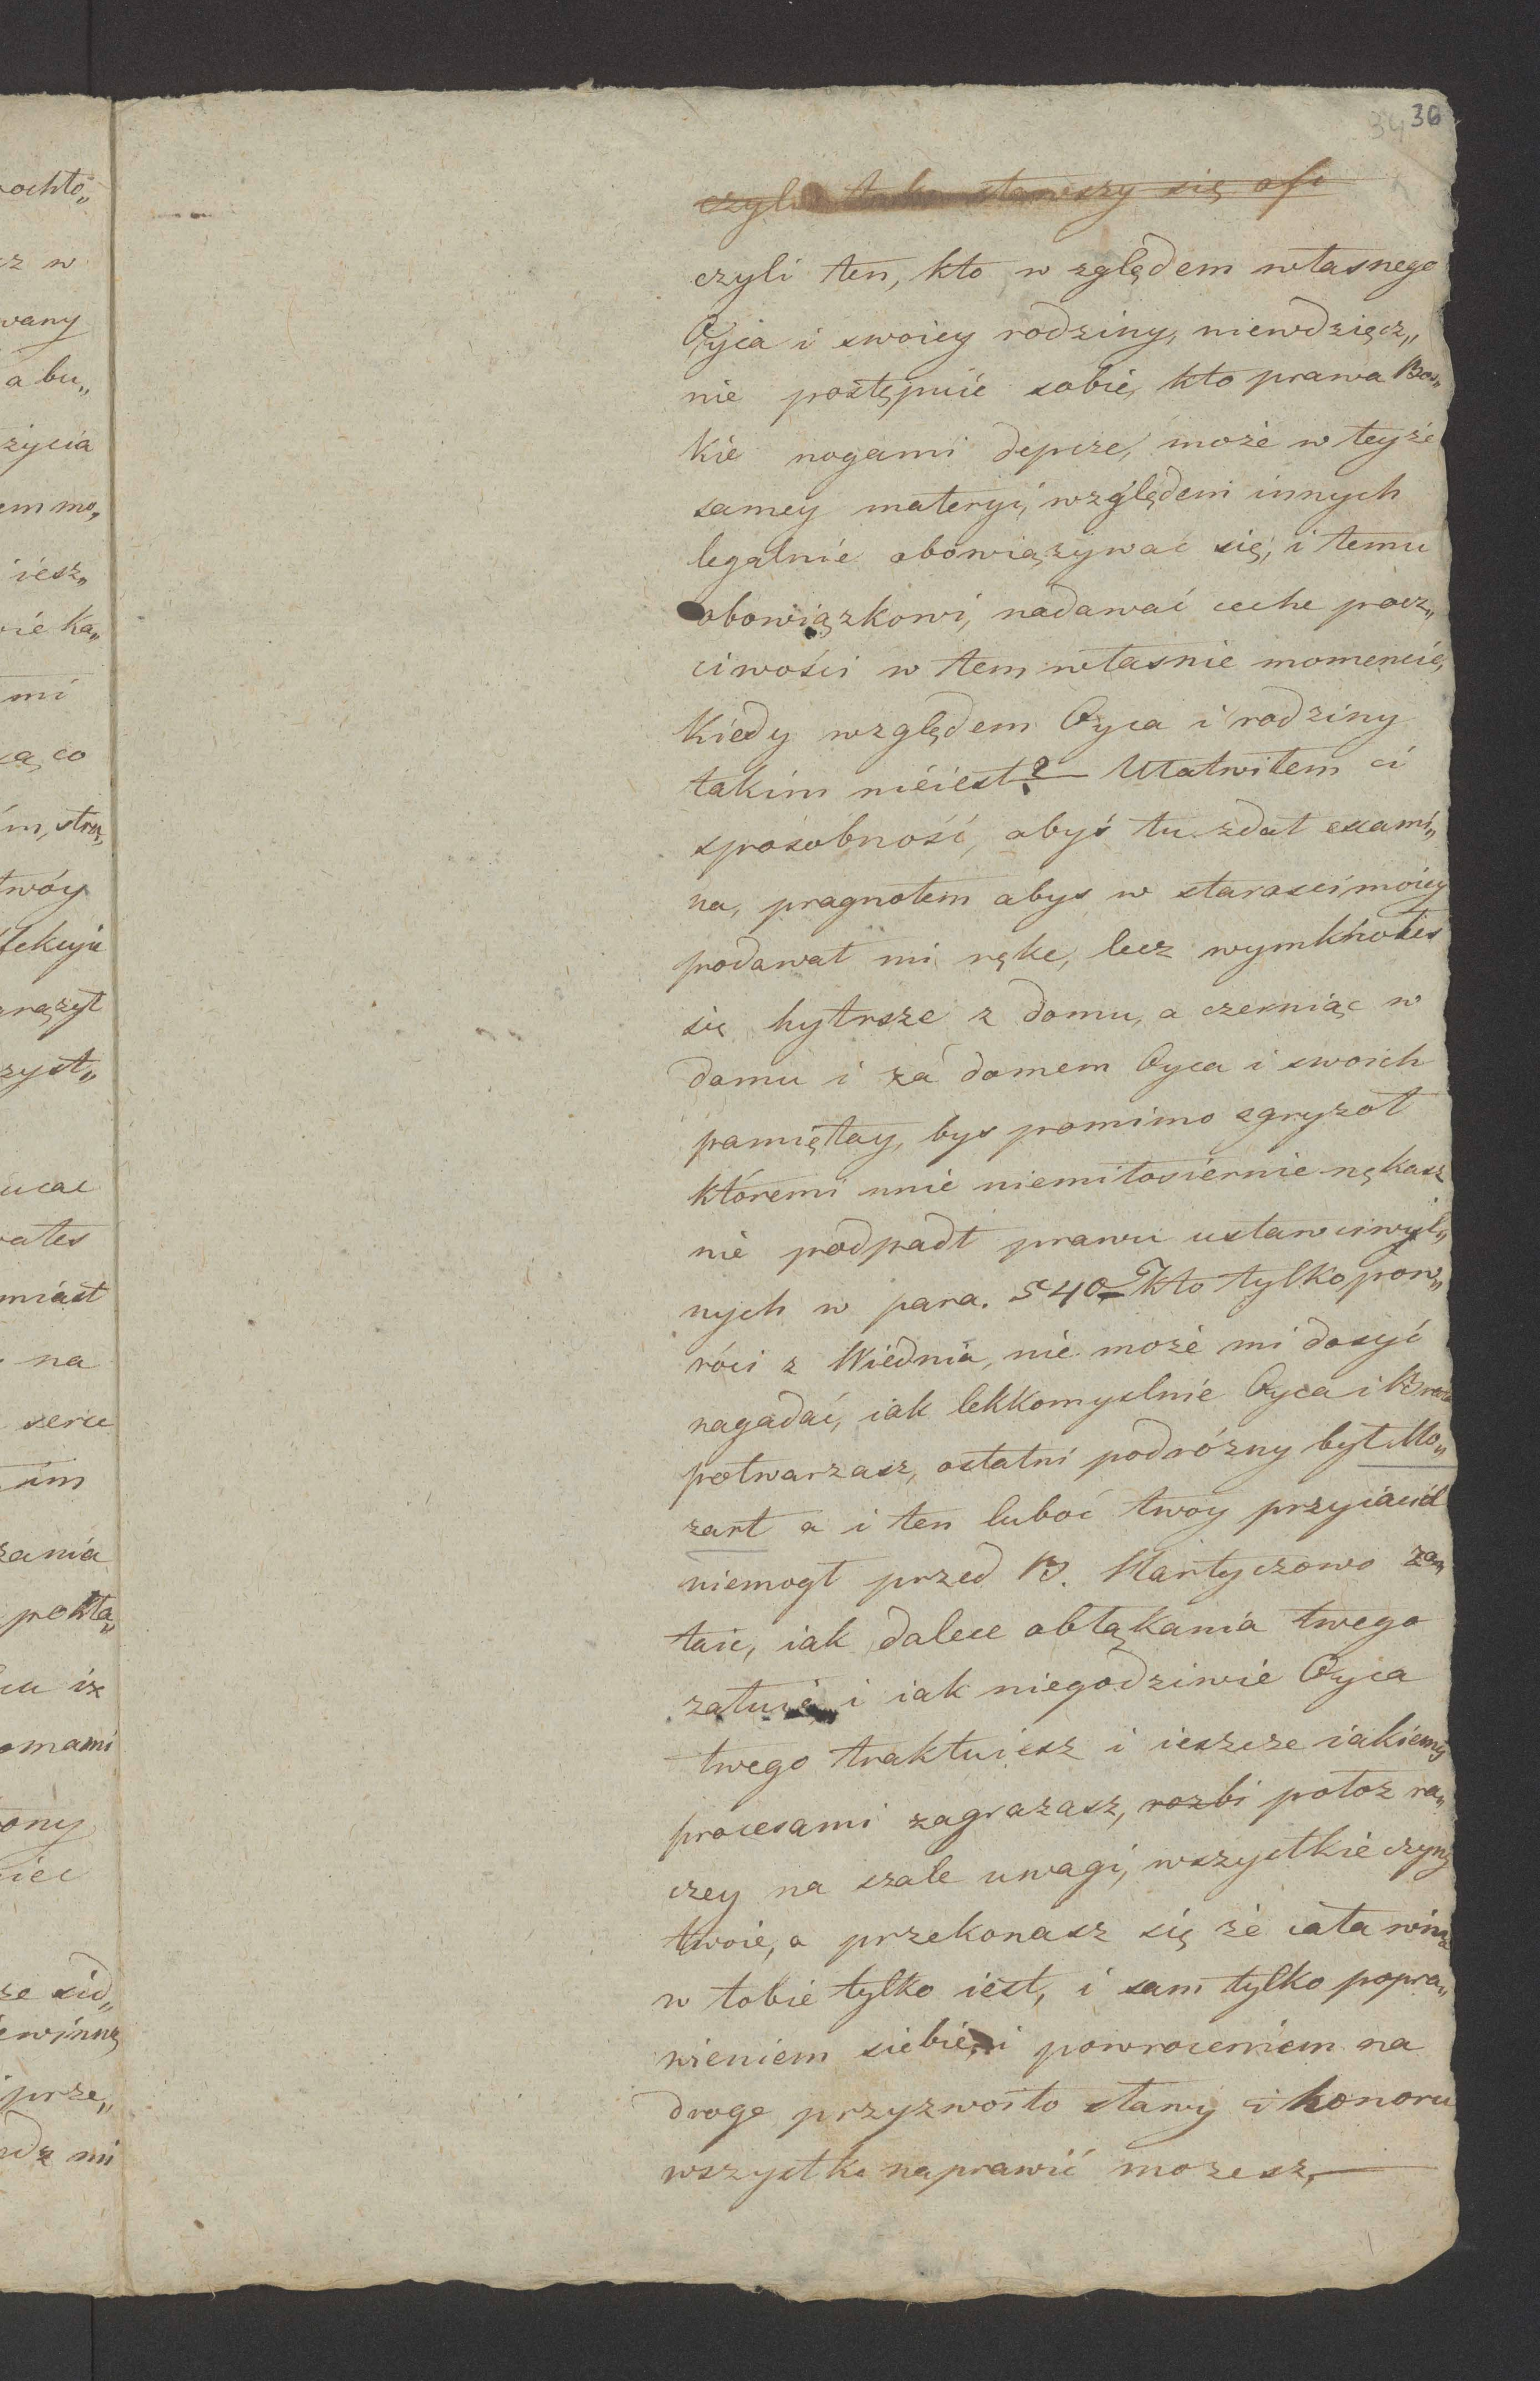 ochło„
cz w
wany
a bu„
życia
em mo„
iesz„
wie ka„
mi
są, co
twóy
grążył
zyst„
ucac
wałes
miast
na
serce
tim
zania
pokła„
iż
omami
ony
iec
ze sid„
ewinną
prze„
mi
34 36
czyli tak stawszy się ofi
czyli ten, kto w zględem własnego
Oyca i swoiey rodziny, niewdzięcz„
nie postępuie sobie, kto prawa Bos„
kie nogami depcze, może w teyże
samey materyi, względem innych
legalnie obowiązywać się, i temu
obowiązkowi, nadawać ceche pocz„
ciwości w tem własnie momencie,
kiedy względem Oyca i rodziny
takim nieiest? — Ułatwiłem ci
sposobność, abyś tu zdał exami„
na, pragnołem abys w starosci moiey
podawał mi ręke, lecz wymknołes
się hytrsze z domu, a czerniąc w
domu i za domem Oyca i swoich
pamiętay, bys pomimo zgryzot
któremi mnie niemiłosiernie nękasz
nie podpadł prawu ustaw ciwyl„
nych w para. 540 Kto tylko pow„
róci z Wiednia, nie może mi dosyć
nagadać, iak lekkomyslnie Oyca i Brata
potwarzasz, ostatni podrózny był Mo„
zart a i ten luboć twoy przyiaciel
niemogł przed B. Hartyczowo za„
taic, iak dalece obłąkania twego
załuie, i iak niegodziwie Oyca
twego traktuiesz i ieszcze iakiemiś
procesami zagrazasz, rozbi połoz ra„
czey na szale uwagi, wszystkie czyny
twoie, a przekonasz się że cała wina
w tobie tylko iest, i sam tylko popra„
wieniem siebie, i powroceniem na
droge przyzwoito sławy i honoru
wszystko naprawić mozesz, —